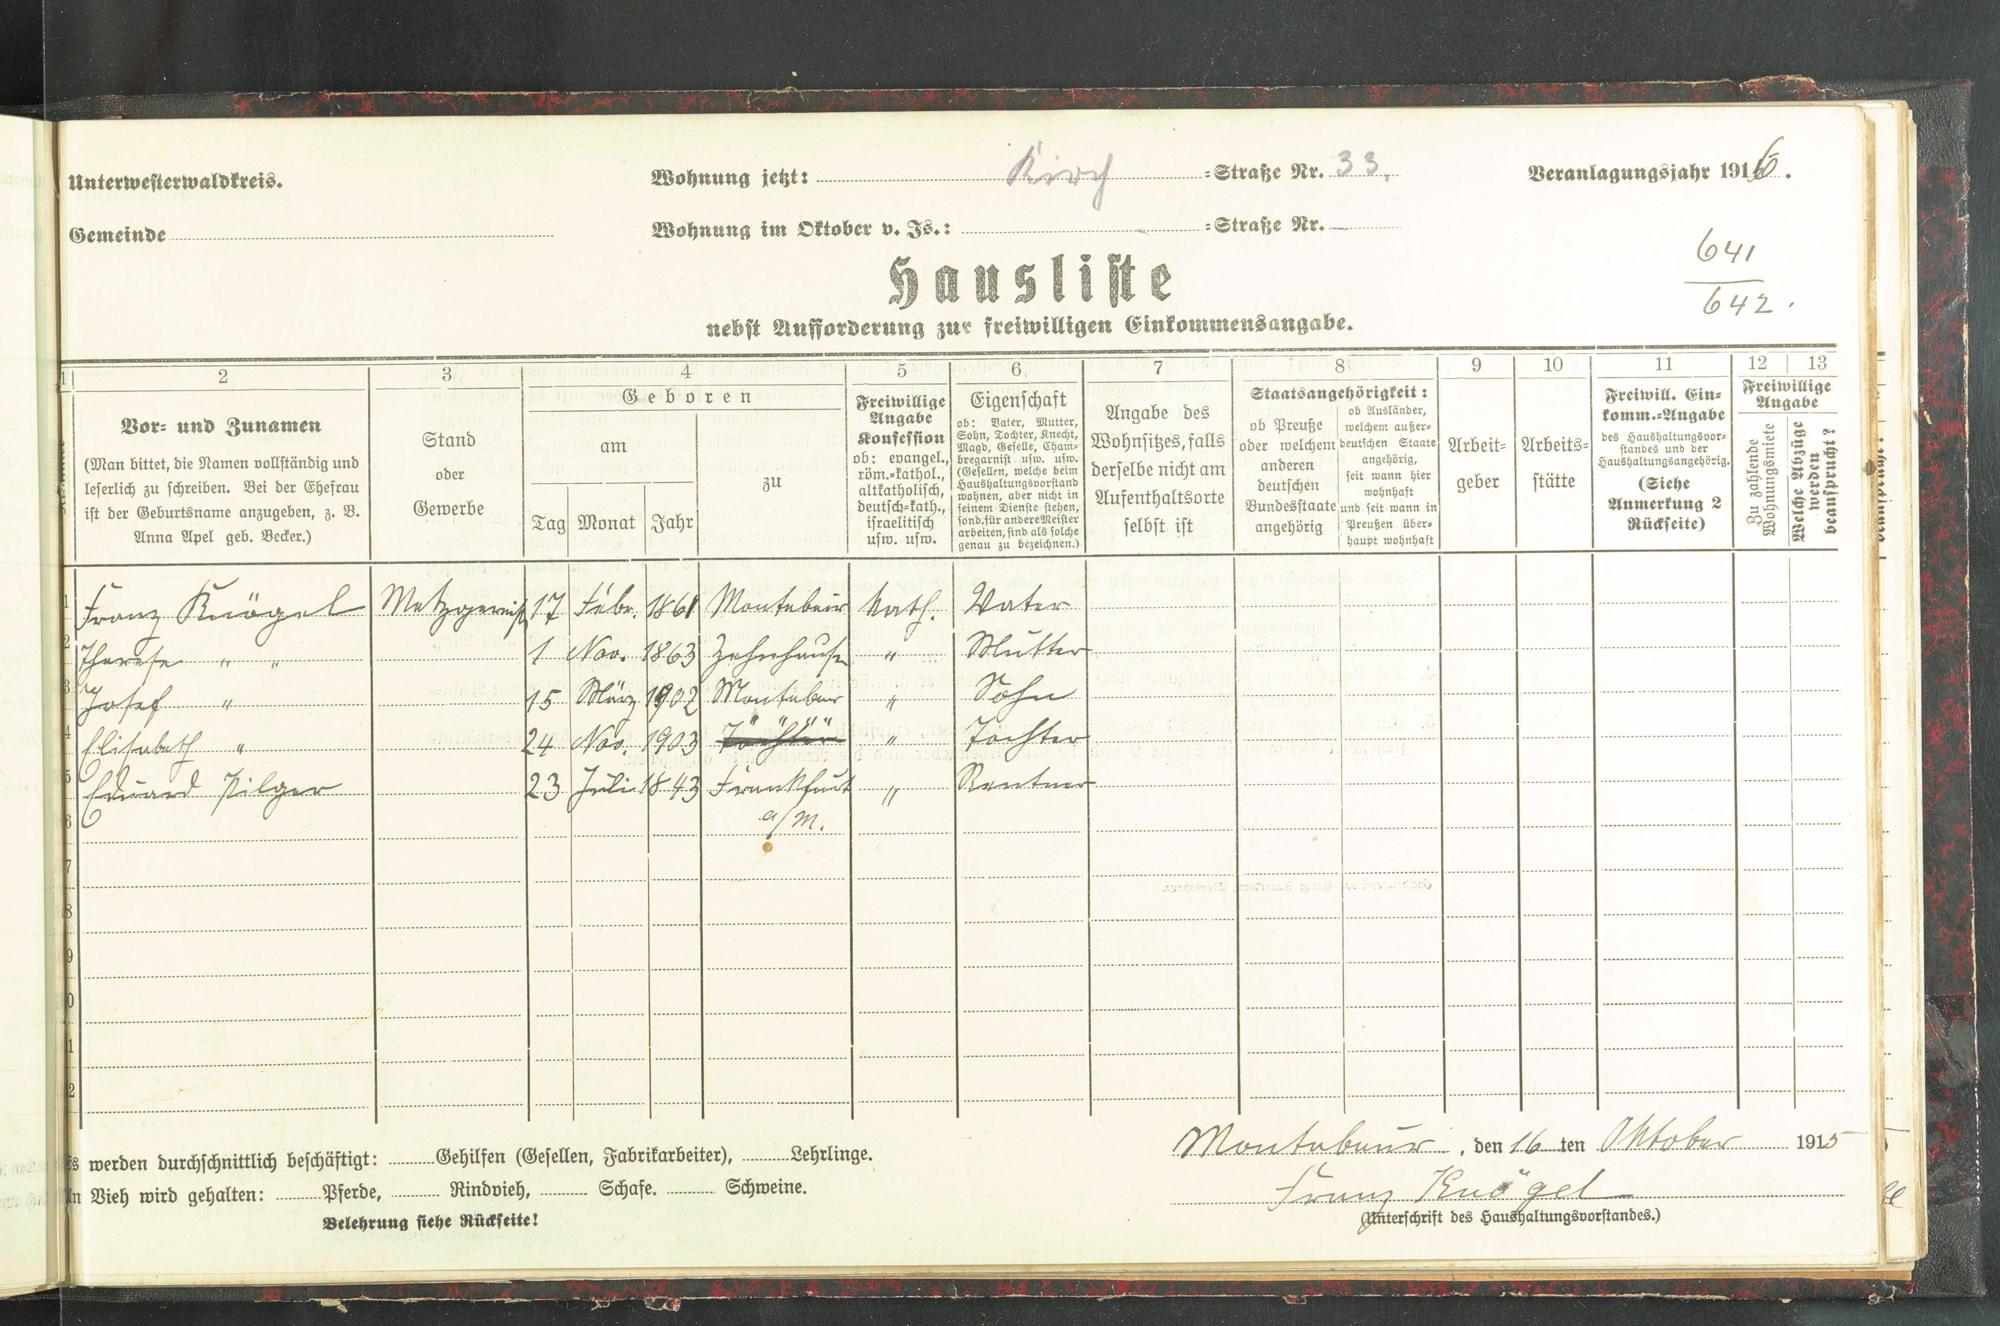 Unterwesterwaldkreis.
Wohnung jetzt: Kirch =Straße Nr. 33.
Veranlagungsjahr 1916.
Gemeinde
Wohnung im Oktober v. Js.: =Straße Nr. —
641
642.
Hausliste
nebst Aufforderung zur freiwilligen Einkommensangabe.
1 2 3 4 5 6 7 8 9 10 11 12 13
Vor- und Zunamen
(Man bittet, die Namen vollständig und
leserlich zu schreiben. Bei der Ehefrau
ist der Geburtsname anzugeben, z. B.
Anna Apel geb. Becker.)
Stand
oder
Gewerbe
Geboren
am
Tag Monat Jahr
zu
Freiwillige
Angabe
Konfession
ob: evangel.,
röm.=kathol.,
altkatholisch,
deutsch=kath.,
israelitisch
usw. usw.
Eigenschaft
ob: Vater, Mutter,
Sohn, Tochter, Knecht,
Magd, Geselle, Cham-
bregarnist usw. usw.
(Gesellen, welche beim
Haushaltungsvorstand
wohnen, aber nicht in
seinem Dienste stehen,
sond. für andere Meister
arbeiten, sind als solche
genau zu bezeichnen.)
Angabe des
Wohnsitzes, falls
derselbe nicht am
Aufenthaltsorte
selbst ist
Staatsangehörigkeit:
ob Preuße
oder welchem
anderen
deutschen
Bundesstaate
angehörig
ob Ausländer,
welchem außer-
deutschen Staate
angehörig,
seit wann hier
wohnhaft
und seit wann in
Preußen über-
haupt wohnhaft
Arbeit-
geber
Arbeits-
stätte
Freiwill. Ein-
komm.=Angabe
des Haushaltungsvor-
standes und der
Haushaltungsangehörig.
(Siehe
Anmerkung 2
Rückseite)
Freiwillige
Angabe
Zu zahlende
Wohnungsmiete
Welche Abzüge
werden
nachgewiesen?
1 Franz Knögel Metzgermstr 17 Febr. 1861 Montabaur kath. Vater
2 Therese " " 1 Nov. 1863 Zehnhausen " Mutter
3 Josef " 15 März 1902 Montabaur " Sohn
4 Elisabeth " 24 Nov. 1903 Tochter " Tochter
5 Eduard Pilger 23 Juli 1843 Frankfurt " Rentner
6 a/M.
7
8
9
0
1
2
Es werden durchschnittlich beschäftigt: Gehilfen (Gesellen, Fabrikarbeiter), Lehrlinge.
An Vieh wird gehalten: Pferde, Rindvieh, Schafe. Schweine.
Belehrung siehe Rückseite!
Montabaur, den 16 ten Oktober 1915
Franz Knögel
(Unterschrift des Haushaltungsvorstandes.)